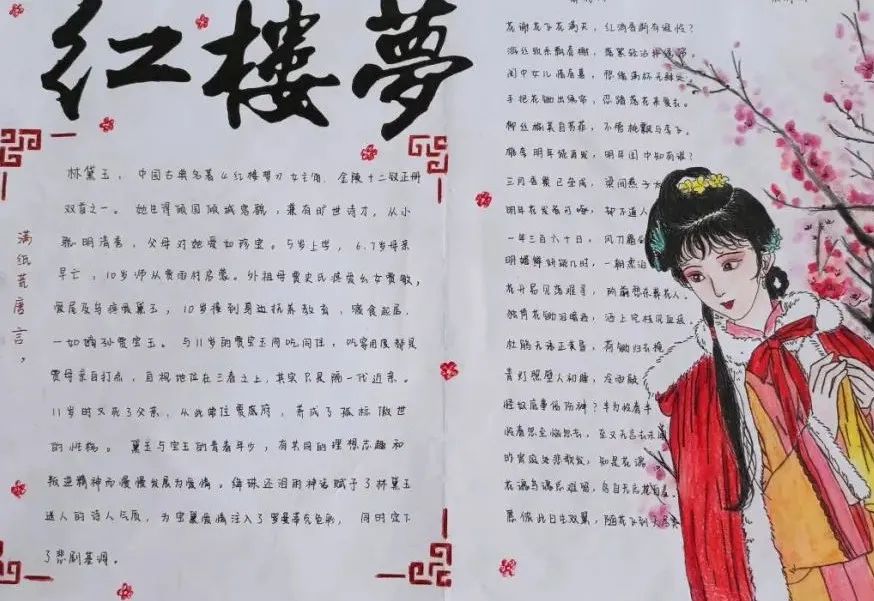 红楼夢
满纸荒唐言，
林黛玉，中国古典名著《红楼梦》女主角，金陵十二钗正册
双首之一。她生得倾国倾城容貌，兼有旷世诗才，从小
聪明清秀，父母对她爱如珍宝。5岁上学，6.7岁母亲
早亡，10岁师从贾雨村启蒙。外祖母贾史氏疼爱幺女贾敏，
爱屋及乌疼爱黛玉，10岁接到身边抚养教育，暖食起居，
一如嫡孙贾宝玉。与11岁的贾宝玉同吃同住，吃穿用度都是
贾母亲自打点，自视地位在三春之上，其实只是隔一代近亲。
11岁时又死了父亲，从此常住贾府，养成了孤标傲世
的性格。黛玉与宝玉的青春年少，有共同的理想志趣和
叛逆精神而慢慢发展为爱情。绛珠还泪用神话赋予了林黛玉
迷人的诗人气质，为宝黛爱情注入了罗曼蒂克色彩，同时定下
了悲剧基调。
花谢花飞花满天，红消香断有谁怜？
游丝软系飘春榭，落絮轻沾扑绣帘。
闺中女儿惜春暮，愁绪满怀无释处。
手把花锄出绣帘，忍踏落花来复去。
柳丝榆荚自芳菲，不管桃飘与李飞。
桃李明年能再发，明年闺中知有谁？
三月香巢已垒成，梁间燕子
明年花发虽可啄，却不道人
一年三百六十日，风刀霜
明媚鲜妍能几时，一朝漂泊
花开易见落难寻，阶前愁杀葬花人。
独倚花锄泪暗洒，洒上空枝见血痕。
杜鹃无语正黄昏，荷锄归去掩
青灯照壁人初睡，冷雨敲
怪奴底事倍伤神？半为怜春半
怜春忽至恼忽去，至又无言去未闻
昨宵庭外悲歌发，知是花魂
花魂鸟魂总难留，鸟自无言花自羞
愿侬此日生双翼，随花飞到天尽头